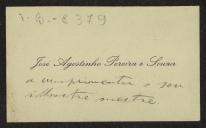 José Agostinho Pereira e Souza
a cumprimentar o seu
illustre mestre.